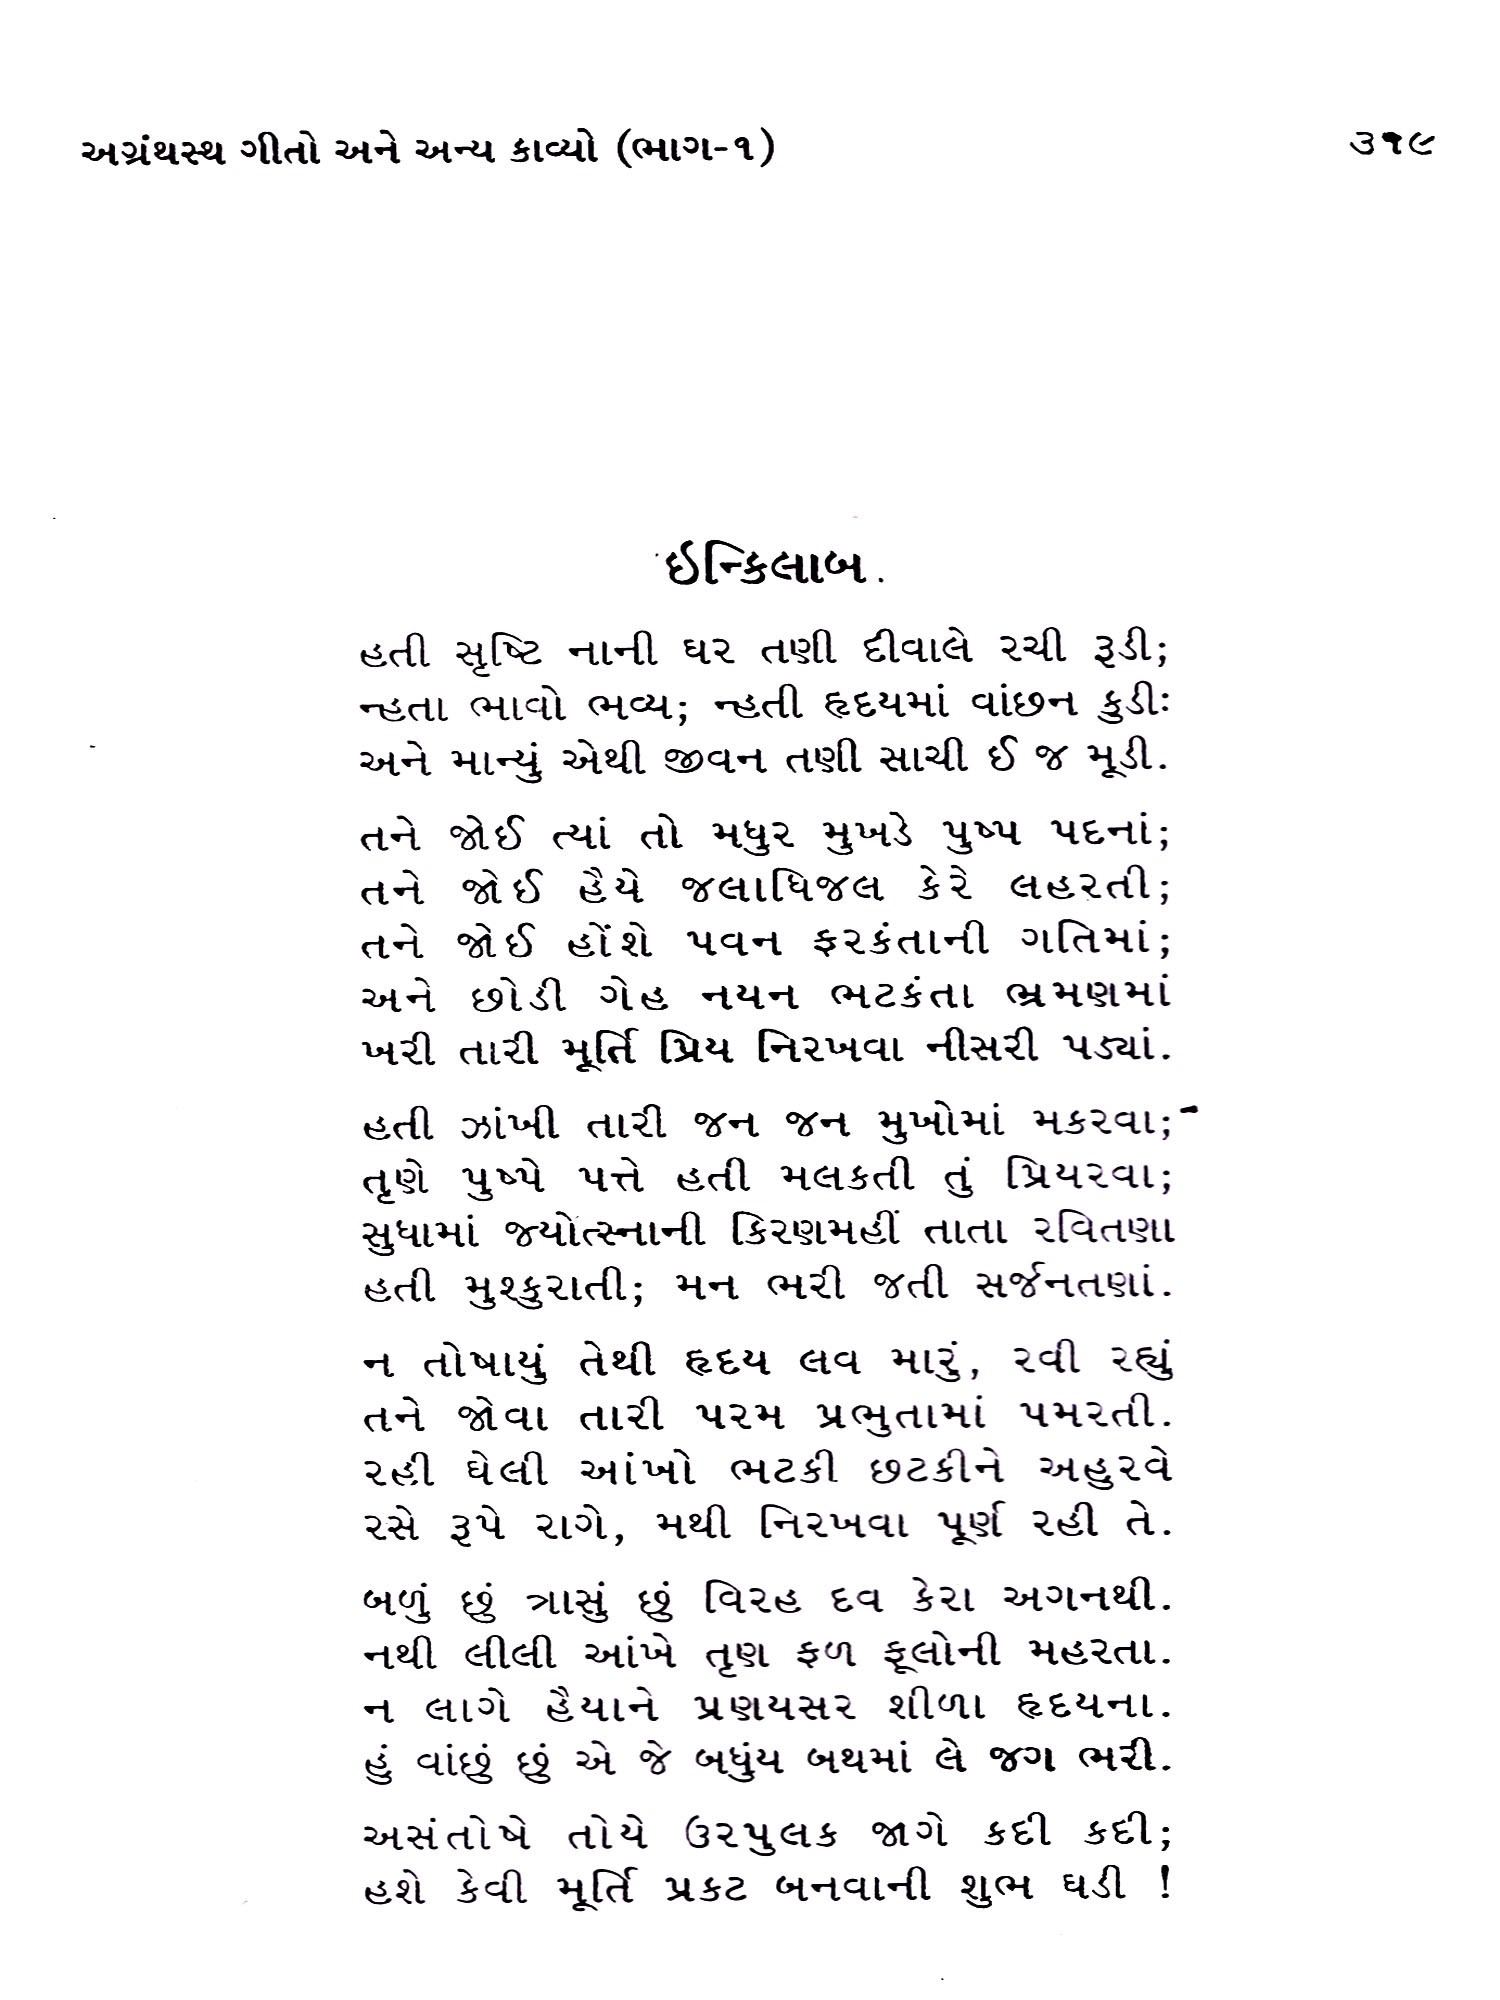 અગ્રંથસ્થ ગીતો અને અન્ય કાવ્યો (ભાગ-૧)
૩૧૯
ઇન્કિલાબ
હતી સૃષ્ટિ નાની ઘર તણી દીવાલે રચી રૂડી;
ન્હતા ભાવો ભવ્ય; ન્હતી હૃદયમાં વાંછન કુડીઃ
અને માન્યું એથી જીવન તણી સાચી ઈ જ મૂડી.
તને જોઈ ત્યાં તો મધુર મુખડે પુષ્પ પદનાં;
તને જોઈ હૈયે જલાધિજલ કેરે લહરતી;
તને જોઈ હોંશે પવન ફરકંતાની ગતિમાં;
અને છોડી ગેહ નયન ભટકંતા ભ્રમણમાં
ખરી તારી મૂર્તિ પ્રિય નિરખવા નીસરી પડ્યાં.
હતી ઝાંખી તારી જન જન મુખોમાં મકરવા;
તૃણે પુષ્પે પત્તે હતી મલકતી તું પ્રિયરવા;
સુધામાં જ્યોત્સ્નાની કિરણમહીં તાતા રવિતણા
હતી મુશ્કુરાતી; મન ભરી જતી સર્જનતણાં.
ન તોષાયું તેથી હૃદય લવ મારું, રવી રહ્યું
તને જોવા તારી પરમ પ્રભુતામાં પમરતી.
રહી ઘેલી આંખો ભટકી છટકીને અહુરવે
રસે રૂપે રાગે, મથી નિરખવા પૂર્ણ રહી તે.
બળું છું ત્રાસું છું વિરહ દવ કેરા અગનથી.
નથી લીલી આંખે તૃણ ફળ ફૂલોની મહરતા.
ન લાગે હૈયાને પ્રણયસર શીળા હૃદયના.
હું વાંછું છું એ જે બધુંય બથમાં લે જગ ભરી.
અસંતોષે તોયે ઉરપુલક જાગે કદી કદી;
હશે કેવી મૂર્તિ પ્રકટ બનવાની શુભ ઘડી !